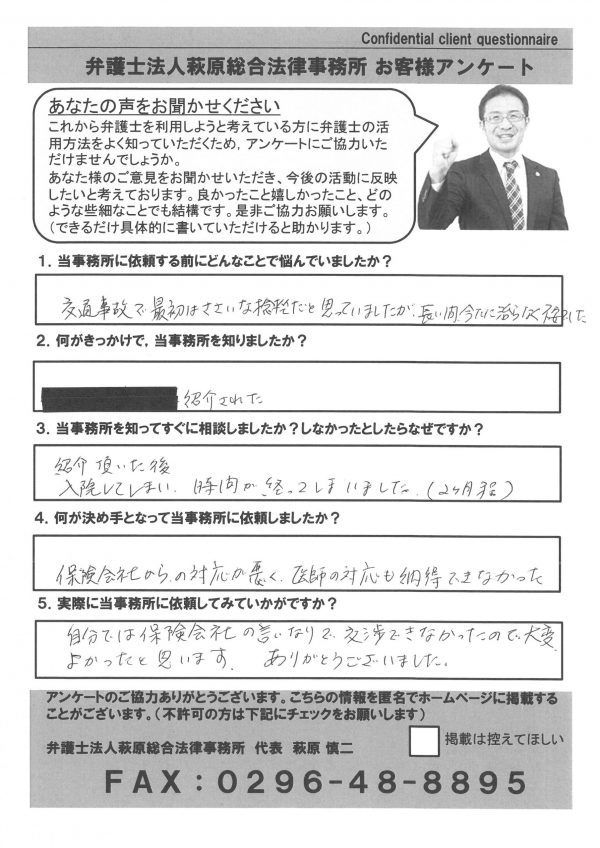 Confidential client questionnaire
弁護士法人萩原総合法律事務所 お客様アンケート
あなたの声をお聞かせください
これから弁護士を利用しようと考えている方に弁護士の活
用方法をよく知っていただくため，アンケートにご協力いた
だけませんでしょうか。
あなた様のご意見をお聞かせいただき、今後の活動に反映
したいと考えております。良かったこと嬉しかったこと、どの
ような些細なことでも結構です。是非ご協力お願いします。
（できるだけ具体的に書いていただけると助かります。）
1．当事務所に依頼する前にどんなことで悩んでいましたか？
交通事故で最初はささいな捻挫だと思っていましたが、長い間、今だに治らなく
2．何がきっかけで，当事務所を知りましたか？
紹介された
3．当事務所を知ってすぐに相談しましたか？しなかったとしたらなぜですか？
紹介頂いた後
入院してしまい、時間が経ってしまいました。（2ヶ月程）
4．何が決め手となって当事務所に依頼しましたか？
保険会社からの対応が悪く、医師の対応も納得できなかった
5．実際に当事務所に依頼してみていかがですか？
自分では保険会社の言いなりで、交渉できなかったので、大変
よかったと思います。 ありがとうございました。
アンケートのご協力ありがとうございます。こちらの情報を匿名でホームページに掲載する
ことがございます。（不許可の方は下記にチェックをお願いします）
掲載は控えてほしい
弁護士法人萩原総合法律事務所 代表 萩原 慎二
FAX：0296-48-8895